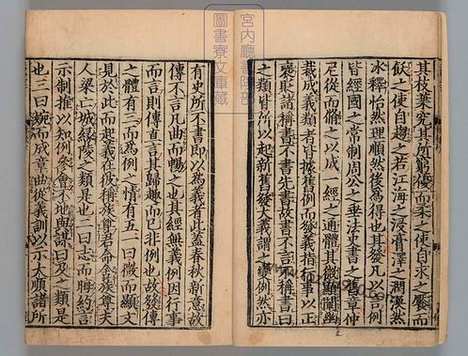 宮内廳書陵部
圖書寮文庫藏
其枝葉究其所窮優而柔之使自求之饜而
飫之使自趨之若江海之浸膏澤之潤渙然
冰釋怡然理順然後爲得也其發凡以言例
皆經國之常制周公之垂法史書之舊章仲
尼從而脩之以成一經之通體其微顯闡幽
裁成義類者皆據舊例而發義指行事以正
褒貶諸稱書不書先書故書不言不稱書曰
之類皆所以起新舊發大義謂之變例然亦
有史所不書即以爲義者此蓋春秋新意故
傳不言凡曲而暢之也其經無義例因行事
而言則傳直言其歸趣而已非例也故發傳
之體有三而爲例之情有五一曰微而顯文
見於此而起義在彼稱族尊君命舍族尊夫
人梁亡城緣陵之類是也二曰志而晦約言
示制推以知例參會不地與謀曰及之類是
也三曰婉而成章曲從義訓以示大順諸所